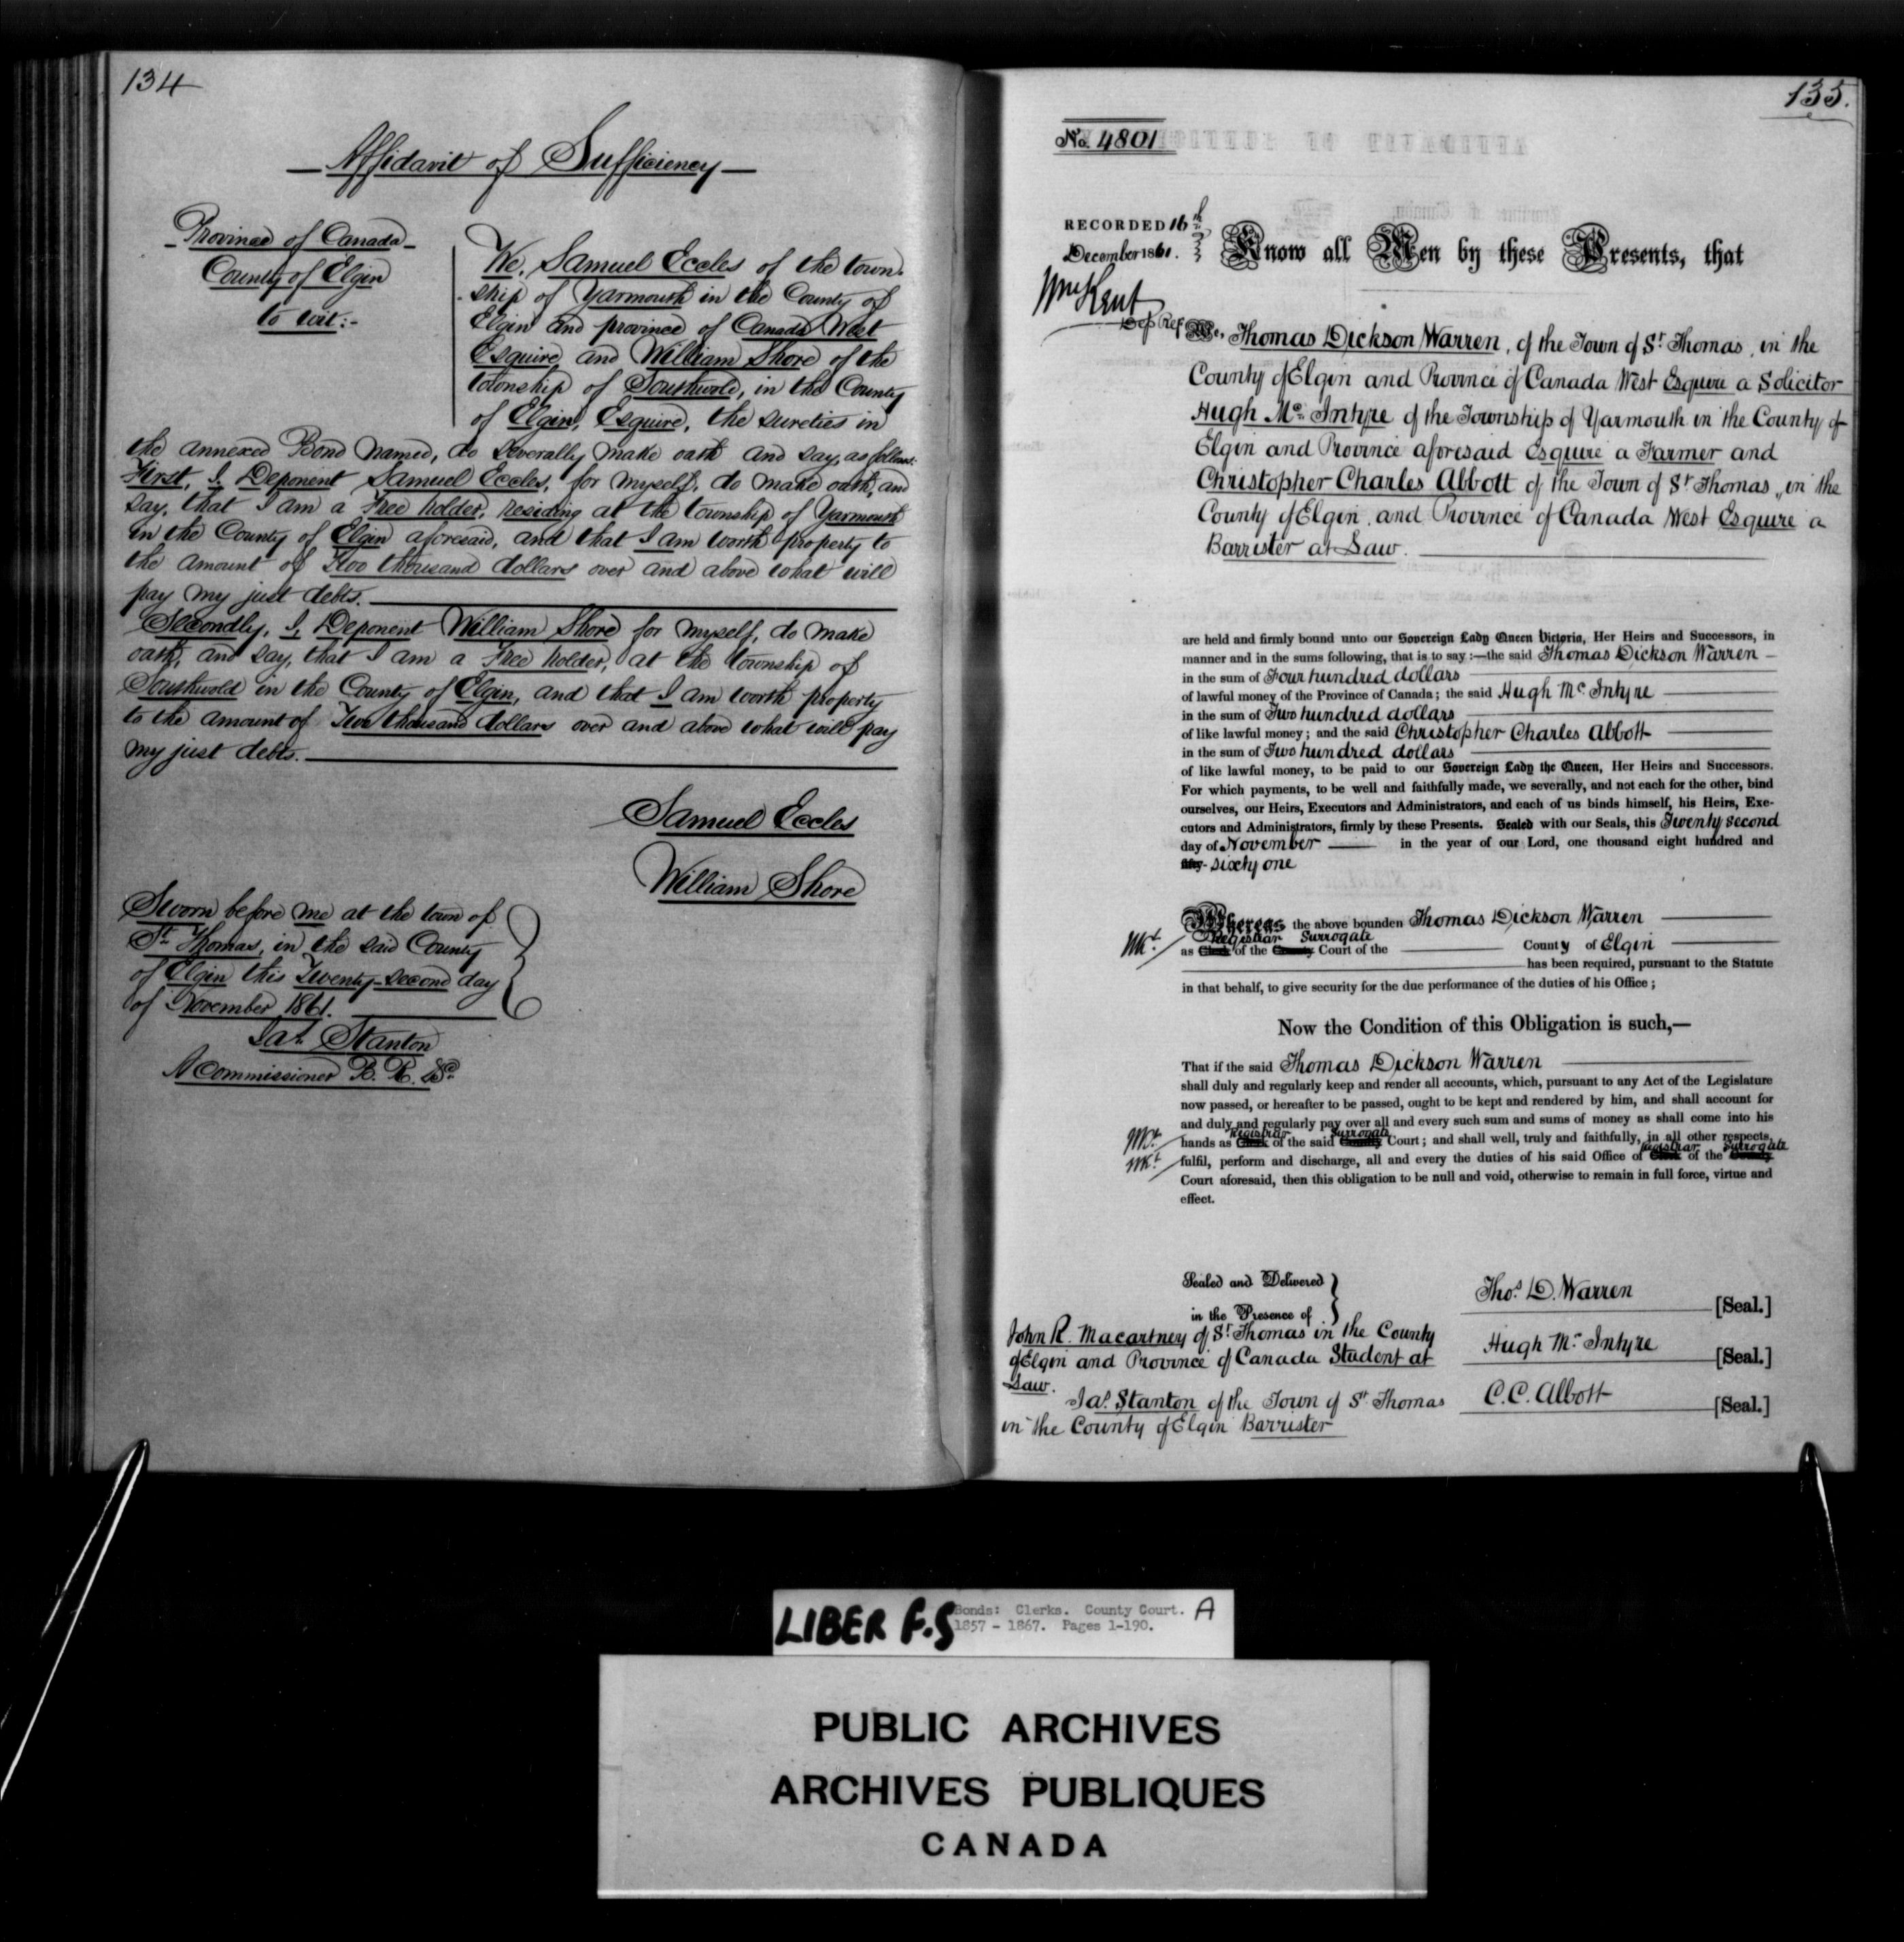 134
Affidavit of Sufficiency
Province of Canada
County of Elgin
to wit:-
We, Samuel Eccles of the town-
ship of Yarmouth in the County of
Elgin and province of Canada West
Esquire and William Shore of the
township of Southwold, in the County
of Elgin, Esquire, the sureties in
the annexed Bond named, do severally make oath and say, as follows.
First, I, Deponent Samuel Eccles, for myself, do make oath, and
say, that I am a Free holder, residing at the township of Yarmouth
in the County of Elgin aforesaid, and that I am worth property to
the amount of Two thousand dollars over and above what will
pay my just debts.
Secondly, I, Deponent William Shore for myself, do make
oath, and say, that I am a Free holder, at the township of
Southwold in the County of Elgin, and that I am worth property
to the amount of Two thousand dollars over and above what will pay
my just debts.
Samuel Eccles
William Shore
Sworn before me at the town of
St. Thomas, in the said County
of Elgin this Twenty-second day
of November 1861.
Jas. Stanton
A Commissioner B. R. &c.
135.
No. 4801
RECORDED 16th
December 1861.
Wm Kent
Dep Reg
Know all Men by these Presents, that
We, Thomas Dickson Warren, of the Town of St. Thomas, in the
County of Elgin and Province of Canada West Esquire a Solicitor
Hugh Mc Intyre of the Township of Yarmouth in the County of
Elgin and Province aforesaid Esquire a Farmer and
Christopher Charles Abbott of the Town of St. Thomas, in the
County of Elgin and Province of Canada West Esquire a
Barrister at Law.
are held and firmly bound unto our Sovereign Lady Queen Victoria, Her Heirs and Successors, in
manner and in the sums following, that is to say :—the said Thomas Dickson Warren
in the sum of Four hundred dollars
of lawful money of the Province of Canada; the said Hugh Mc Intyre
in the sum of Two hundred dollars
of like lawful money; and the said Christopher Charles Abbott
in the sum of Two hundred dollars
of like lawful money, to be paid to our Sovereign Lady the Queen, Her Heirs and Successors.
For which payments, to be well and faithfully made, we severally, and not each for the other, bind
ourselves, our Heirs, Executors and Administrators, and each of us binds himself, his Heirs, Exe-
cutors and Administrators, firmly by these Presents. Sealed with our Seals, this Twenty second
day of November in the year of our Lord, one thousand eight hundred and
fifty- sixty one
Whereas the above bounden Thomas Dickson Warren
Registrar Surrogate
WKt. as Clerk of the County Court of the County of Elgin
has been required, pursuant to the Statute
in that behalf, to give security for the due performance of the duties of his Office;
Now the Condition of this Obligation is such,—
That if the said Thomas Dickson Warren
shall duly and regularly keep and render all accounts, which, pursuant to any Act of the Legislature
now passed, or hereafter to be passed, ought to be kept and rendered by him, and shall account for
and duly and regularly pay over all and every such sum and sums of money as shall come into his
Registrar Surrogate
WKt. hands as Clerk of the said County Court; and shall well, truly and faithfully, in all other respects,
Registrar Surrogate
WKt. fulfil, perform and discharge, all and every the duties of his said Office of Clerk of the County
Court aforesaid, then this obligation to be null and void, otherwise to remain in full force, virtue and
effect.
Sealed and Delivered
in the Presence of
John R. Macartney of St. Thomas in the County
of Elgin and Province of Canada Student at
Law.
Jas. Stanton of the Town of St. Thomas
in the County of Elgin Barrister
Thos. D. Warren [Seal.]
Hugh Mc. Intyre [Seal.]
C.C. Abbott [Seal.]
LIBER F.S
Bonds: Clerks. County Court. A
1857 - 1867. Pages 1-190.
PUBLIC ARCHIVES
ARCHIVES PUBLIQUES
CANADA